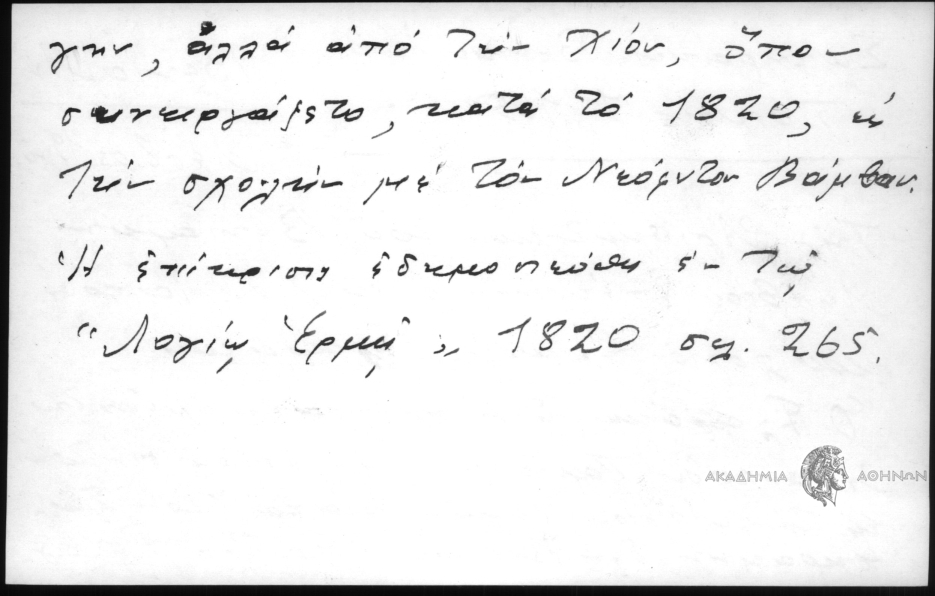 γην, ἀλλά ἀπό τήν Χίον, ὅπου
συνειργάζετο, κατά τό 1820, εἰς
τήν σχολήν μέ τόν Νεόφυτον Βάμβαν.
Ἡ ἐπίκρισις ἐδημοσιεύθη ἐν τῷ
"Λογίῳ Ἑρμῇ", 1820 σελ. 265.
ΑΚΑΔΗΜΙΑ ΑΘΗΝΩΝ